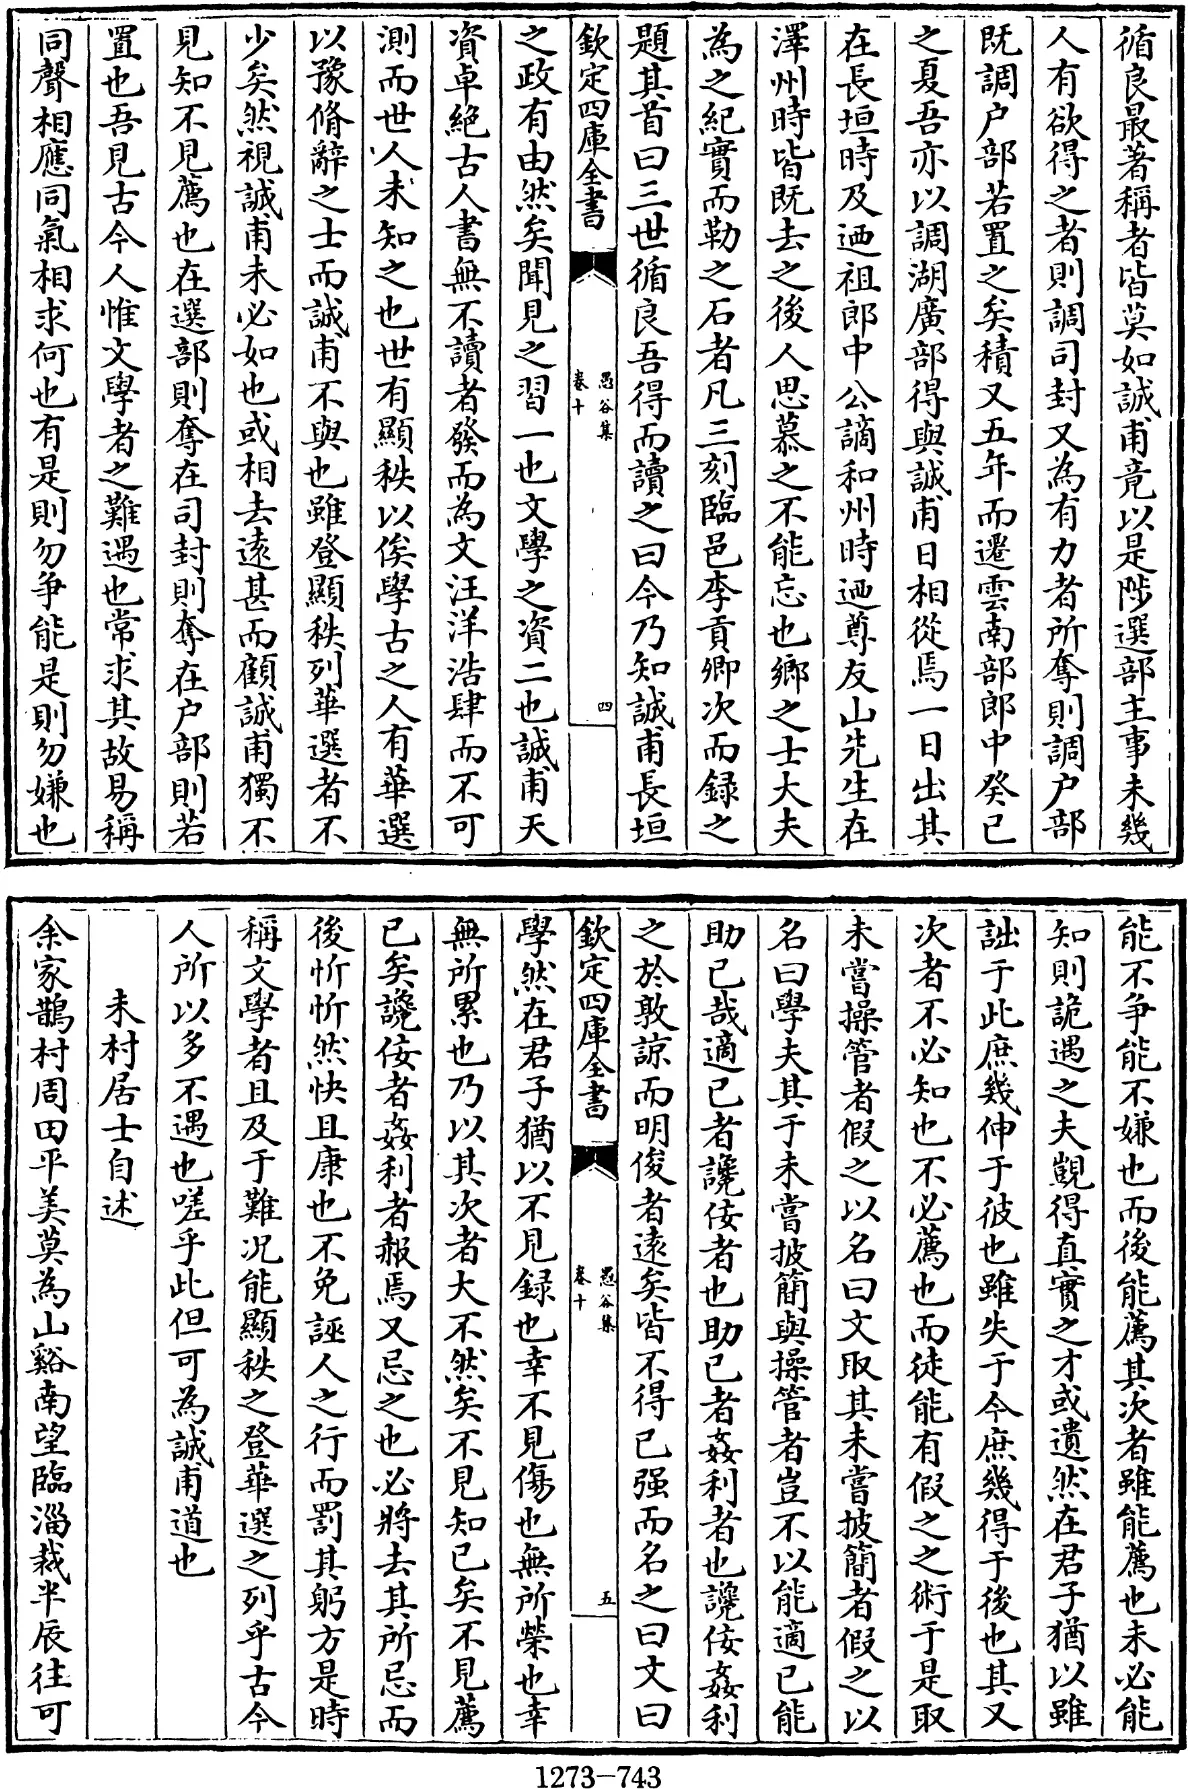 循良最著稱者皆莫如誠甫竟以是陟選部主事未幾
人有欲得之者則調司封又為有力者所奪則調户部
既調户部若置之矣積又五年而遷雲南部郎中癸已
之夏吾亦以調湖廣部得與誠甫日相從焉一日出其
在長垣時及迺祖郎中公謫和州時迺尊友山先生在
澤州時皆既去之後人思慕之不能忘也鄉之士大夫
為之紀實而勒之石者凡三刻臨邑李貢卿次而録之
題其首曰三世循良吾得而讀之曰今乃知誠甫長垣
欽定四庫全書
愚谷集
卷十
四
之政有由然矣聞見之習一也文學之資二也誠甫天
資卓絶古人書無不讀者發而為文汪洋浩肆而不可
測而世人未知之也世有顯秩以俟學古之人有華選
以豫脩辭之士而誠甫不與也雖登顯秩列華選者不
少矣然視誠甫未必如也或相去遠甚而顧誠甫獨不
見知不見薦也在選部則奪在司封則奪在户部則若
置也吾見古今人惟文學者之難遇也常求其故易稱
同聲相應同氣相求何也有是則勿争能是則勿嫌也
能不争能不嫌也而後能薦其次者雖能薦也未必能
知則詭遇之夫覬得真實之才或遺然在君子猶以雖
詘于此庶幾伸于彼也雖失于今庶幾得于後也其又
次者不必知也不必薦也而徒能有假之之術于是取
未嘗操管者假之以名曰文取其未嘗披簡者假之以
名曰學夫其于未嘗披簡與操管者豈不以能適已能
助已哉適已者讒佞者也助已者姦利者也讒佞姦利
之於敦諒而明俊者遠矣皆不得已强而名之曰文曰
欽定四庫全書
愚谷集
卷十
五
學然在君子猶以不見録也幸不見傷也無所榮也幸
無所累也乃以其次者大不然矣不見知已矣不見薦
已矣讒佞者姦利者赧焉又忌之也必將去其所忌而
後忻忻然快且康也不免誣人之行而罰其躬方是時
稱文學者且及于難况能顯秩之登華選之列乎古今
人所以多不遇也嗟乎此但可為誠甫道也
未村居士自述
余家鵲村周田平美莫為山谿南望臨淄裁半辰往可
1273—743